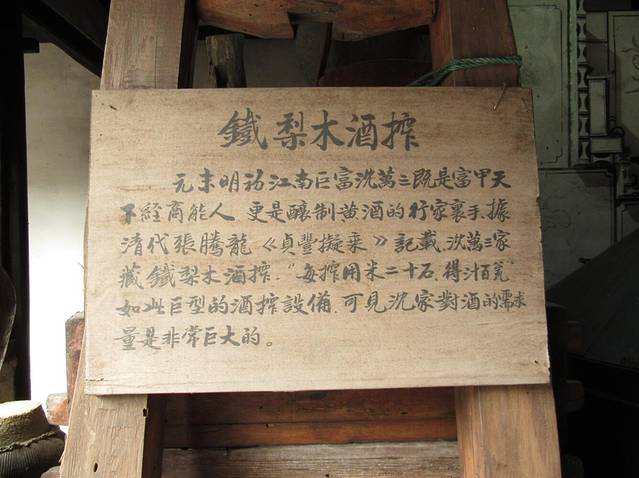 鐵梨木酒搾
元末明初江南巨富沈萬三既是富甲天
下經商能人,更是釀制黄酒的行家裏手,據
清代張騰龍《貞豐擬乘》記載,沈萬三家
藏鐵梨木酒搾,"每搾用米二十石,得汁百瓮"
如此巨型的酒搾設備,可見沈家對酒的需求
量是非常巨大的。